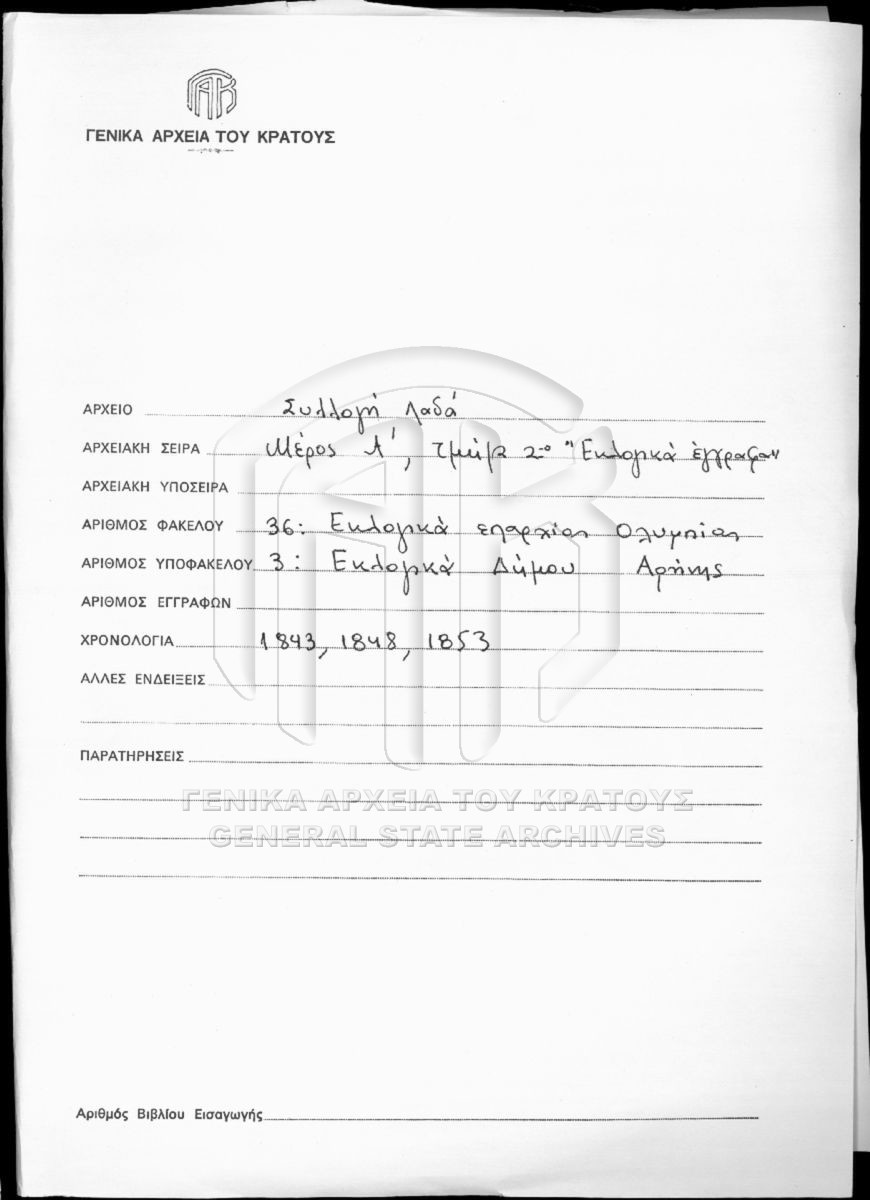 ΓΑΚ
ΓΕΝΙΚΑ ΑΡΧΕΙΑ ΤΟΥ ΚΡΑΤΟΥΣ
ΑΡΧΕΙΟ Συλλογή Λαδά
ΑΡΧΕΙΑΚΗ ΣΕΙΡΑ Μέρος Α', Τμήμα 2ο "Εκλογικά έγγραφα"
ΑΡΧΕΙΑΚΗ ΥΠΟΣΕΙΡΑ
ΑΡΙΘΜΟΣ ΦΑΚΕΛΟΥ 36: Εκλογικά επαρχίας Ολυμπίας
ΑΡΙΘΜΟΣ ΥΠΟΦΑΚΕΛΟΥ 3: Εκλογικά Δήμου Αρήνης
ΑΡΙΘΜΟΣ ΕΓΓΡΑΦΩΝ
ΧΡΟΝΟΛΟΓΙΑ 1843, 1848, 1853
ΑΛΛΕΣ ΕΝΔΕΙΞΕΙΣ
ΠΑΡΑΤΗΡΗΣΕΙΣ
ΓΕΝΙΚΑ ΑΡΧΕΙΑ ΤΟΥ ΚΡΑΤΟΥΣ
GENERAL STATE ARCHIVES
Αριθμός Βιβλίου Εισαγωγής